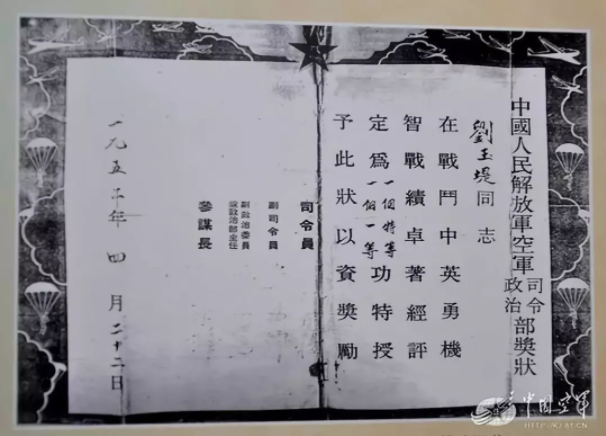 中國人民解放軍空軍司令政治部獎狀
劉玉堤同志
在戰鬥中英勇機
智戰績卓著經評
定為一個特等一個一等功特授
予此狀以資獎勵
司令員
副司令員
副政治委員
兼政治部主任
參謀長
四月二十二日
中国空軍